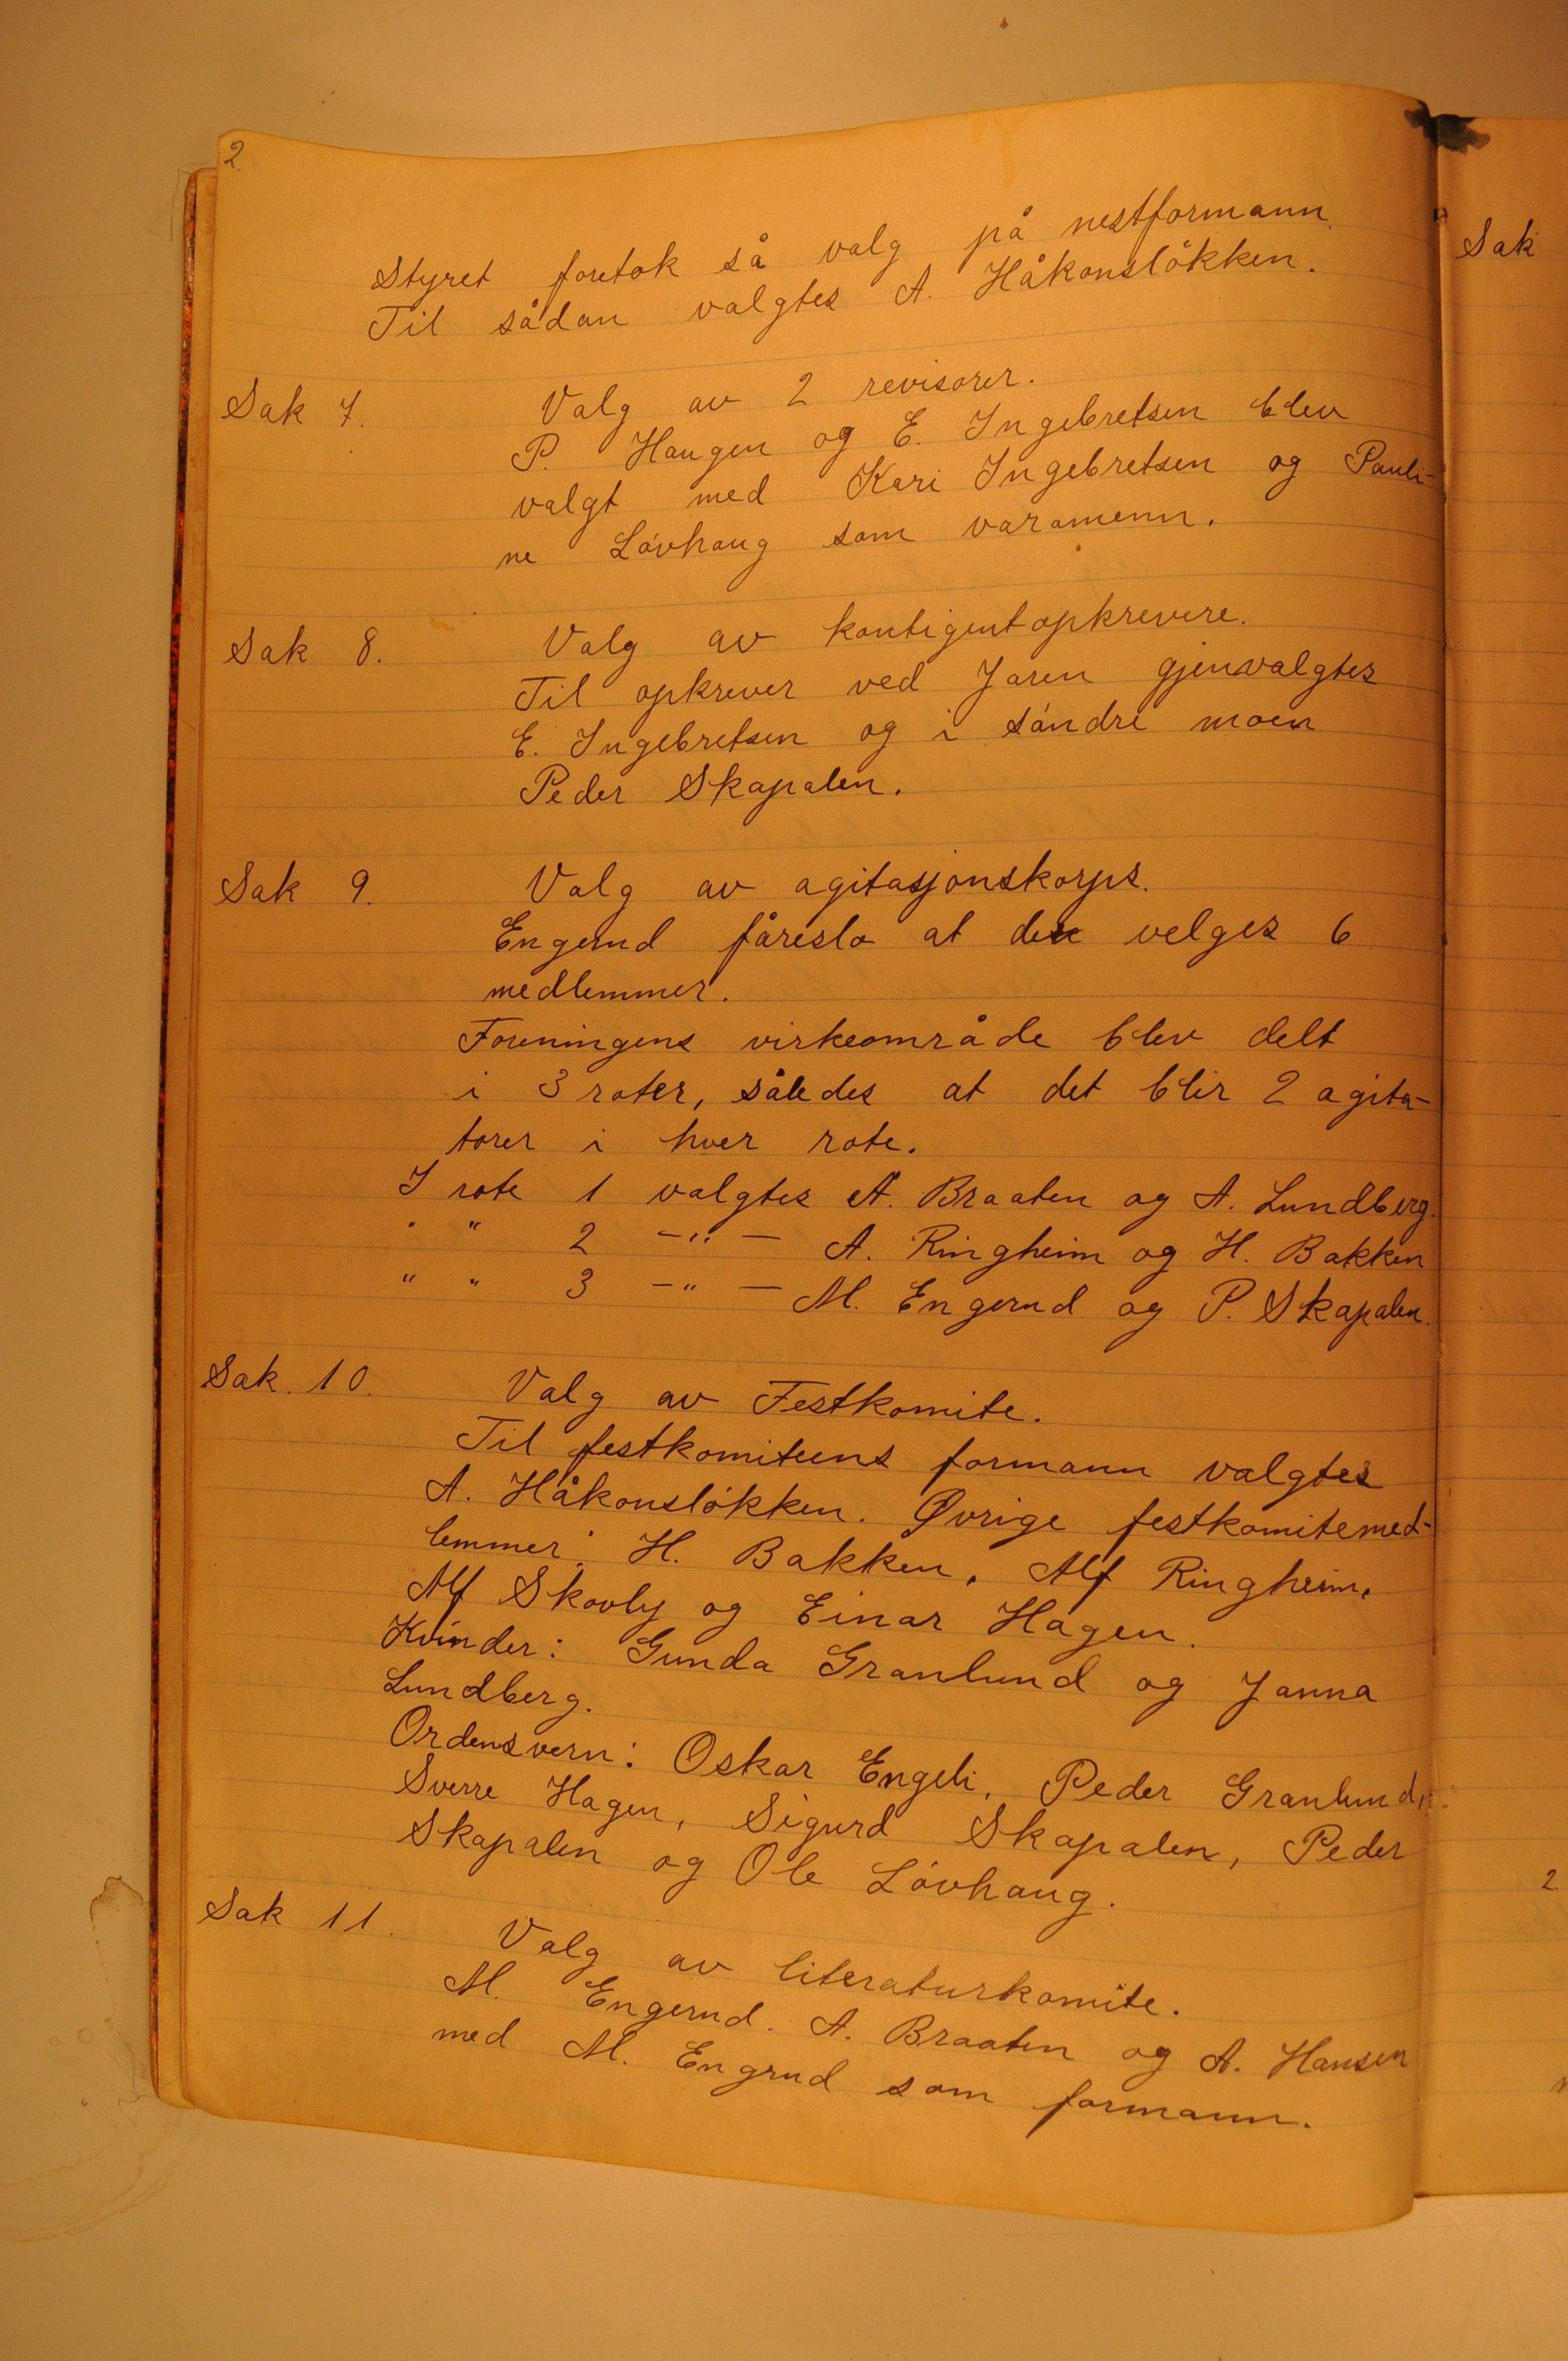 2.
Styret foretok så valg på nestformann.
Til sådan valgtes A. Håkonsløkken.
Sak 7. Valg av 2 revisorer.
P. Haugen og E. Ingebretsen blev
valgt med Kari Ingebretsen og Pauli-
ne Løvhaug som varamenn.
Sak 8. Valg av kontigentopkrevere.
Til opkrever ved Jaren gjenvalgtes
E. Ingebretsen og i søndre moen
Peder Skapalen.
Sak 9. Valg av agitasjonskorps.
Engerud føreslo at der velges 6
medlemmer.
Foreningens virkeområde blev delt
i 3 roter, således at det blir 2 agita-
torer i hver rote.
I rote 1 valgtes A. Braaten og A. Lundberg.
" " 2 -"- A. Ringheim og H. Bakken
" " 3 -"- M. Engerud og P. Skapalen.
Sak. 10. Valg av Festkomite.
Til festkomiteens formann valgtes
A. Håkonsløkken. Øvrige festkomitemed-
lemmer: H. Bakken, Alf Ringheim,
Alf Skovly og Einar Hagen.
Kvinder: Gunda Granlund og Janna
Lundberg.
Ordensvern: Oskar Engeli, Peder Granlund,
Sverre Hagen, Sigurd Skapalen, Peder
Skapalen og Ole Løvhaug.
Sak 11. Valg av literaturkomite.
M. Engerud. A. Braaten og A. Hansen
med M. Engrud som formann.
Sak
2